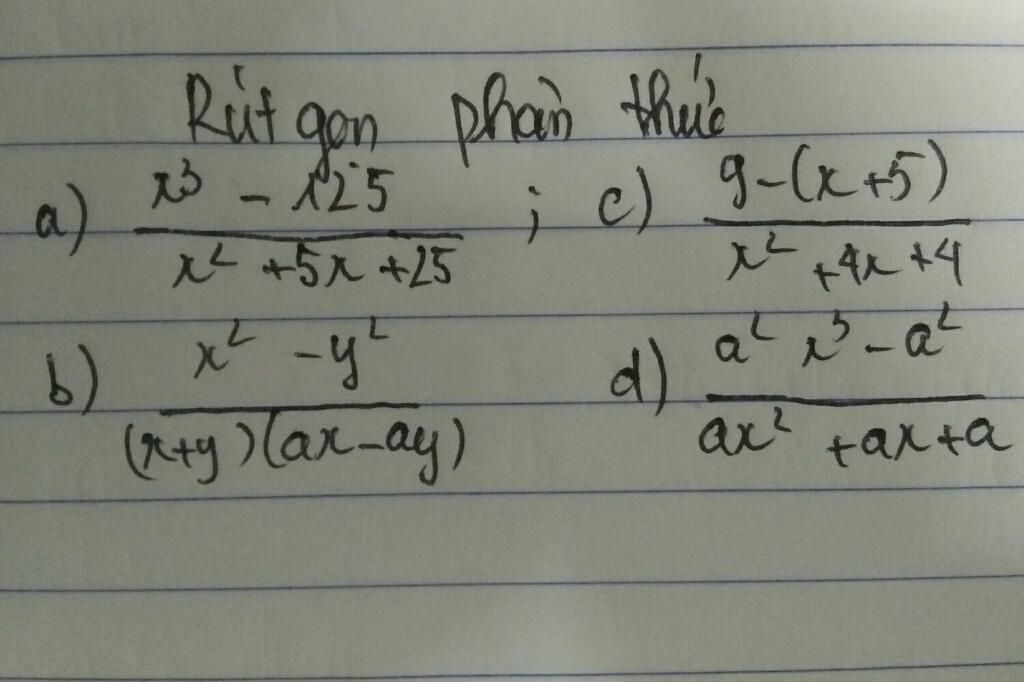 Rút gọn phân thức
a) \frac{x^3 - 125}{x^2 + 5x + 25} ; c) \frac{9-(x+5)}{x^2+4x+4}
b) \frac{x^2 - y^2}{(x+y)(ax-ay)} d) \frac{a^2 x^3 - a^2}{ax^2 + ax + a}